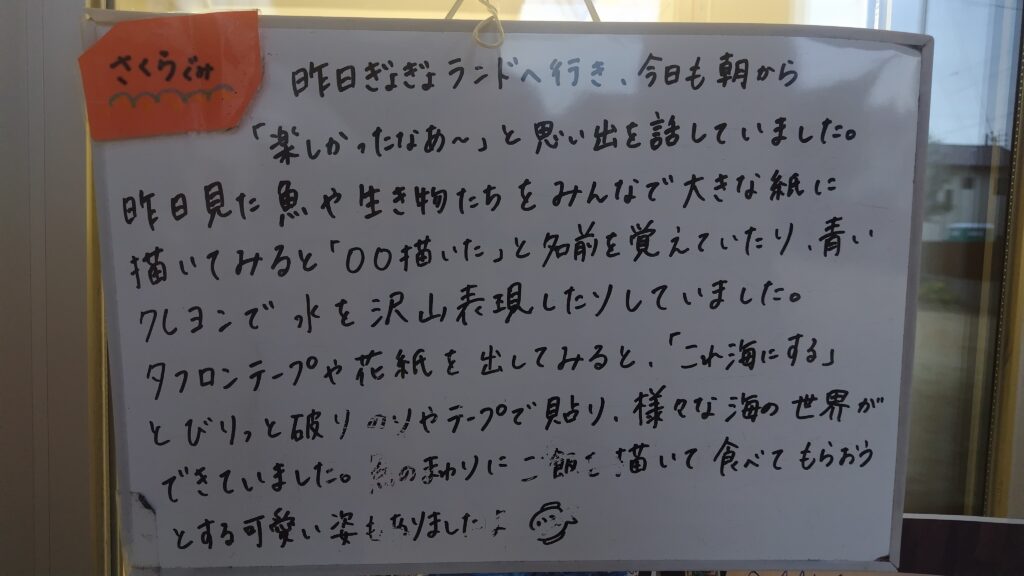 さくらぐみ
昨日ぎょぎょランドへ行き、今日も朝から
「楽しかったなあ～」と思い出を話していました。
昨日見た魚や生き物たちをみんなで大きな紙に
描いてみると「〇〇描いた」と名前を覚えていたり、青い
クレヨンで水を沢山表現したりしていました。
タフロンテープや花紙を出してみると、「これ海にする」
とびりっと破りのりやテープで貼り、様々な海の世界が
できていました。魚のまわりにご飯を描いて食べてもらおう
とする可愛い姿もありました♪